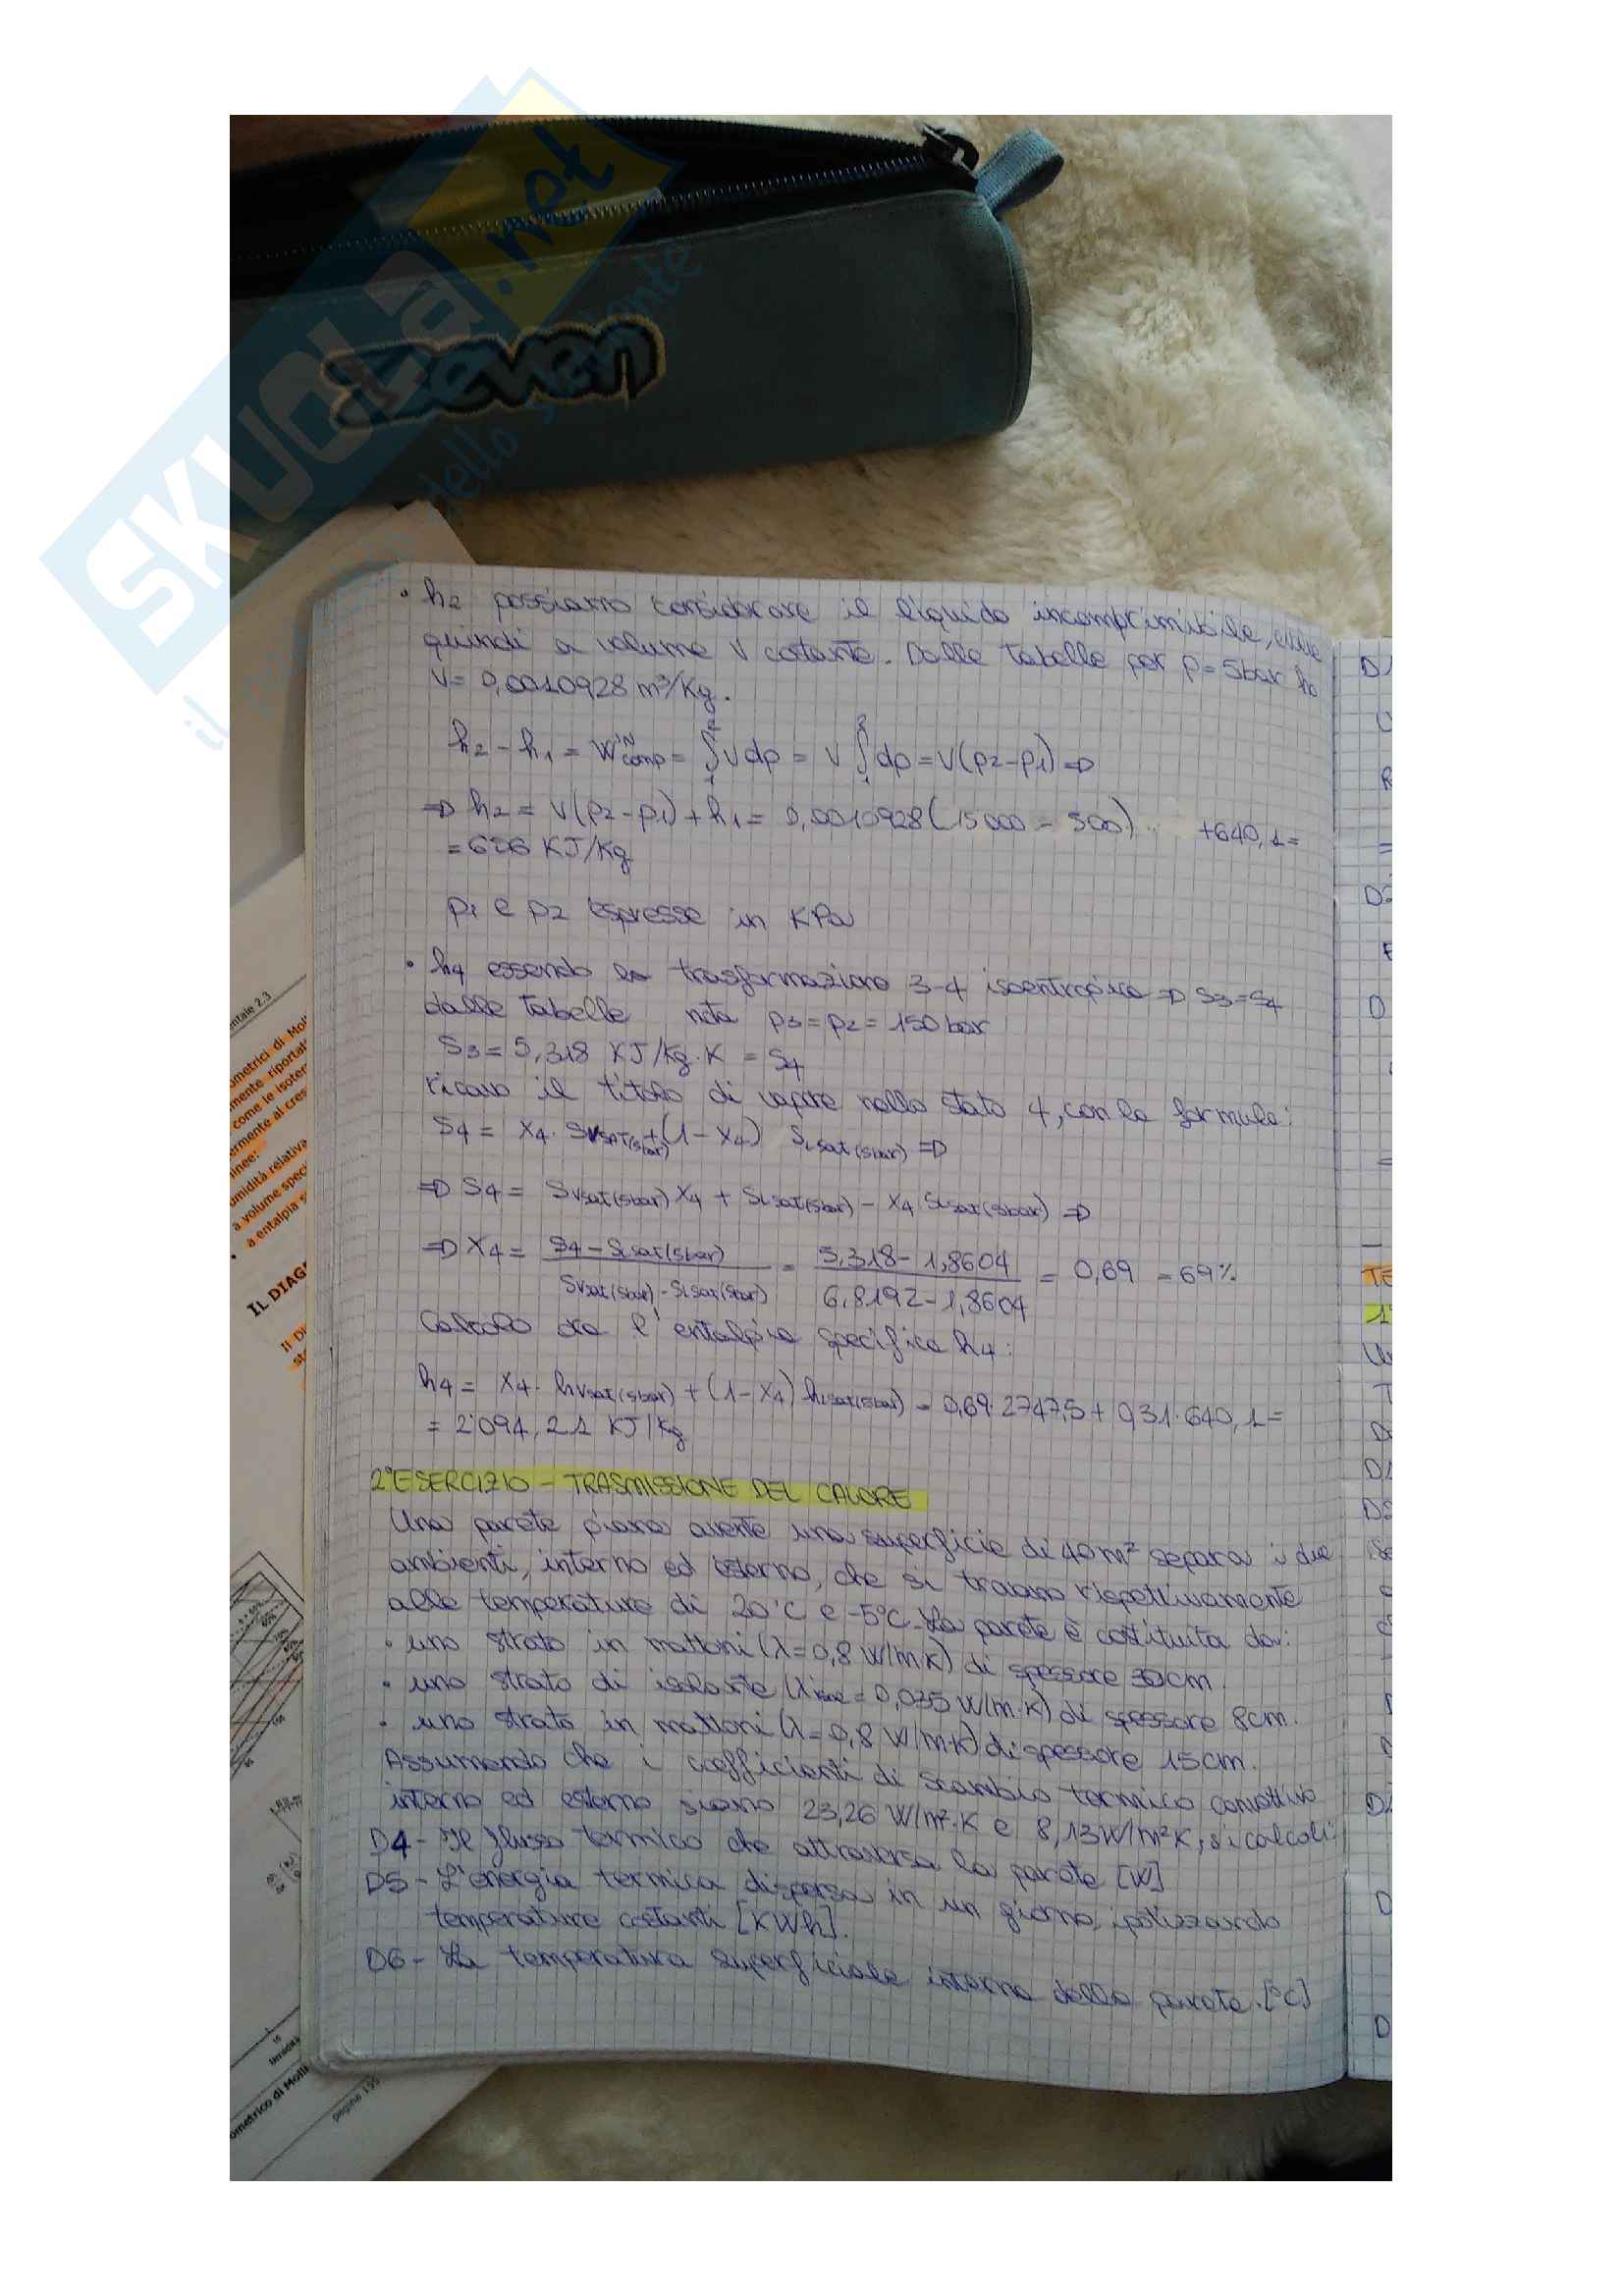 SKUOLA.net
il paradiso dello studente
Seven
• h2 possiamo considerare il liquido incomprimibile,
quindi a volume v costante. Dalle tabelle per p=5bar ho
v= 0,0010928 m³/Kg.
h2 - h1 = W^IN comp = ∫₁² vdp = v ∫₁² dp = v(p2-p1) ⇒
⇒ h2 = v(p2-p1) + h1 = 0,0010928 (15000 - 500) +640,1=
= 656 KJ/Kg
p1 e p2 espresse in KPa
• h4 essendo la trasformazione 3-4 isoentropica ⇒ S3=S4
dalle tabelle nota p3=p2=150bar
S3= 5,318 KJ/Kg·K = S4
ricavo il titolo di vapore nello stato 4, con la formula:
S4 = X4· Svsat(5bar) + (1-X4) SLsat(5bar) ⇒
⇒ S4 = Svsat(5bar) X4 + SLsat(5bar) - X4 SLsat(5bar) ⇒
⇒ X4 = S4 - SLsat(5bar) / Svsat(5bar) - SLsat(5bar) = 5,318 - 1,8604 / 6,8192 - 1,8604 = 0,69 = 69%
Calcolo ora l'entalpia specifica h4:
h4 = X4· hvsat(5bar) + (1-X4) hLsat(5bar) = 0,69·2747,5 + 0,31·640,1=
= 2'094,21 KJ/Kg
2°ESERCIZIO - TRASMISSIONE DEL CALORE
Una parete piana avente una superficie di 40m² separa i due
ambienti, interno ed esterno, che si trovano rispettivamente
alle temperature di 20°C e -5°C. La parete è costituita da:
• uno strato in mattoni (λ=0,8 W/m·K) di spessore 30cm.
• uno strato di isolante (λ = 0,035 W/m·K) di spessore 8cm.
• uno strato in mattoni (λ=0,8 W/m·K) di spessore 15cm.
Assumendo che i coefficienti di scambio termico convettivo
interno ed esterno siano 23,26 W/m²·K e 8,13W/m²K, si calcoli:
D4- Il flusso termico che attraversa la parete [W]
D5- L'energia termica dispersa in un giorno, ipotizzando
temperature costanti [KWh].
D6- La temperatura superficiale interna della parete.[°C]
entale 2.3
come le isoter
umidità relativa
a volume spec
a entalpia s
IL DIAGR
pagina 155